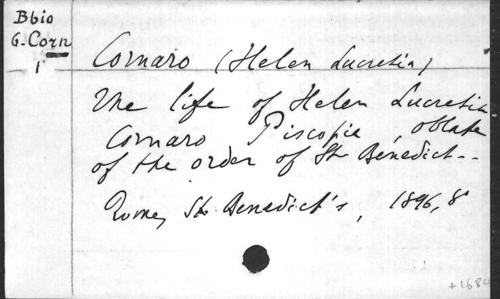 Bbio
G. Corn
1
Cornaro (Helen Lucretia)
The life of Helen Lucretia
Cornaro Piscopie, oblate
of the order of St Benedict--
Rome, St. Benedict's, 1896, 8°